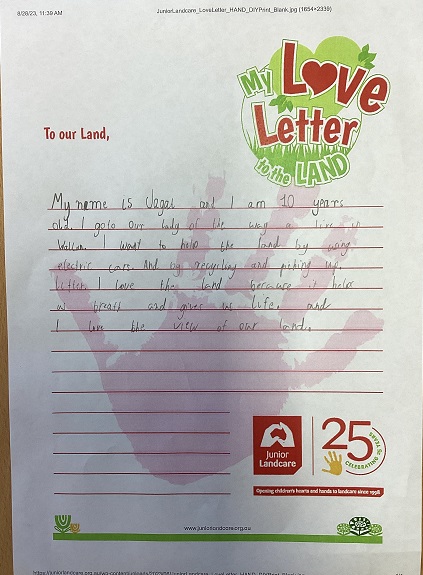 8/28/23, 11:39 AM
JuniorLandcare_LoveLetter_HAND_DIYPrint_Blank.jpg (1654×2339)
My Love
Letter
to the LAND
To our Land,
My name is Jagat and I am 10 years
old. I goto our lady of the way a live in
I want to help the land by using
electric cars. And by recycling and picking up
litter. I love the land because it helps
us breath and gives us life. and
I love the view of our land.
Junior
Landcare
25
CELEBRATING 25 YEARS
Opening children's hearts and hands to landcare since 1998
www.juniorlandcare.org.au